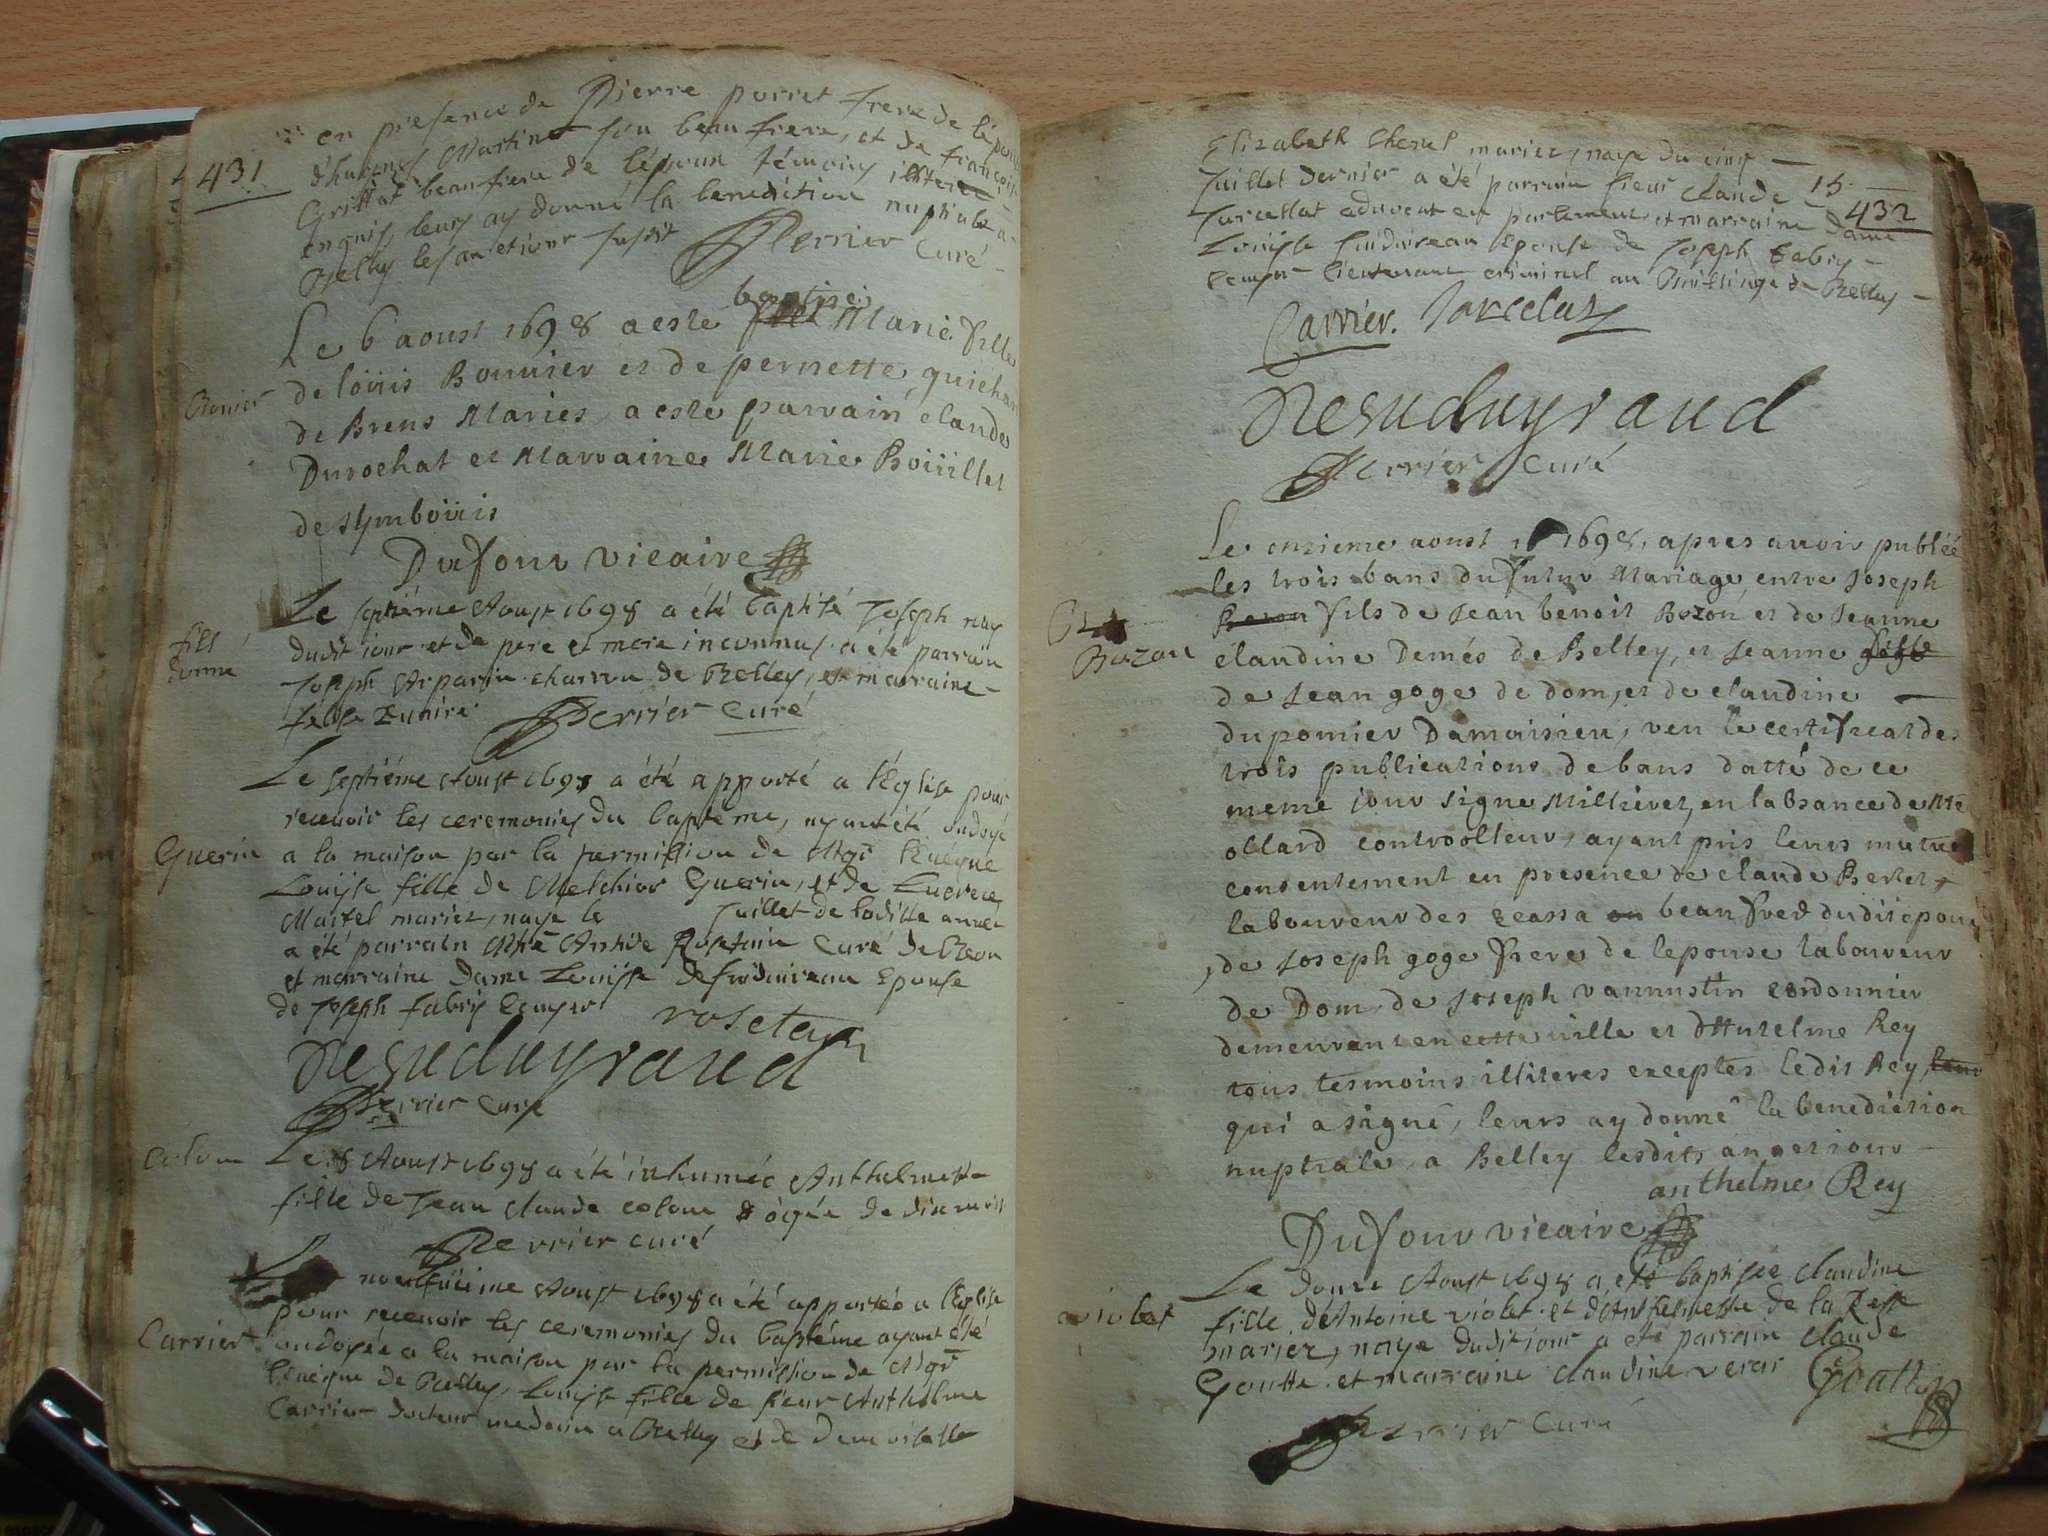 431
en presence de Pierre porret frere de l'epouse
Martinet son beau frere, et de françois
Grillat beau frere de l'epoux témoins illiteres
enquis, leurs ay donné la benediction nuptiale a
Belley les an et jour susdit Perrier Curé
baptisée
Le 6 aoust 1698 a esté Marie fille
Bonier
de loüis Bonnier et de pernette guichar
de Brens Maries, a esté parrain claude
Durochat et Marraine Marie Boüillet
de symboüis
Dufour vicaire
Le septiéme Aoust 1698 a été baptisé Joseph nay
fils donné
dudit jour et de pere et mere inconnus a été parrain
Joseph Arparin charron de Belley, et marraine
Perrier Curé
Le septiéme Aoust 1698 a été apporté a l'Eglise pour
recevoir les ceremonies du baptéme, ayant été ondoyé
Guerin
a la maison par la permission de Mgr l'Evéque
Louyse fille de Melchior Guerin, et de Lucrece
Martel mariez, naye le juillet de laditte année
a été parrain Mre Antide Rosetain Curé de Beon
et marraine Dame Louyse defroiduireau Epouse
de Joseph fabry Ecuyer rosetain
Perrier Curé
Colom
Le 8 Aoust 1698 a été inhumée Anthelmette
fille de Jean Claude colom agée de dix mois
Perrier curé
Le neufuiéme Aoust 1698 a été apportée a l'Eglise
pour recevoir les ceremonies du baptéme ayant été
Carrier
ondoyée a la maison par la permission de Mgr
l'Evéque de Belley, Louyse fille de sieur Anthelme
Carrier docteur medecin a Belley et de Demoiselle
15
432
Elizabeth mariez, naye du cinq
Juillet dernier a été parrain sieur claude
Jarcellat advocat en parlement, et marraine Dame
Louyse froiduireau Epouse de Joseph fabry
Ecuyer lieutenant criminel au Bailliage de Belley
Carrier. Jarcelat
Perrier Curé
Le onzieme aoust 1698, apres auoir publié
les trois bans du futur Mariage entre Joseph
Bozon
fils de Jean benoit Bozon et de Jeanne
claudine Demés de Belley, et Jeanne goge
de Jean goge de dom, et de claudine
du pomier Damoisieu, veu le certificat des
trois publications de bans datté de ce
meme jour signé Millieret, en l'absance de Mre
ollard controolleur, ayant pris leurs mutuel
consentement en presence de claude Bertet
laboureur des ecassa beau frere dudit epoux
de Joseph goge frere de lepouse laboureur
de Dom, de Joseph vannustin cordonnier
demeurant en cette ville et d'Anselme Rey
tous tesmoins illiteres exceptes ledit Rey
qui a signé, leurs ay donné la benediction
nuptiale a Belley lesdits an et jour
anthelme Rey
Dufour vicaire
Le douze Aoust 1698 a été baptisée claudine
violet
fille d'Antoine violet et d'Anthelmette de la
mariez, naye dudit jour a été parrain claude
Goutte et marraine claudine verat
Perrier Curé